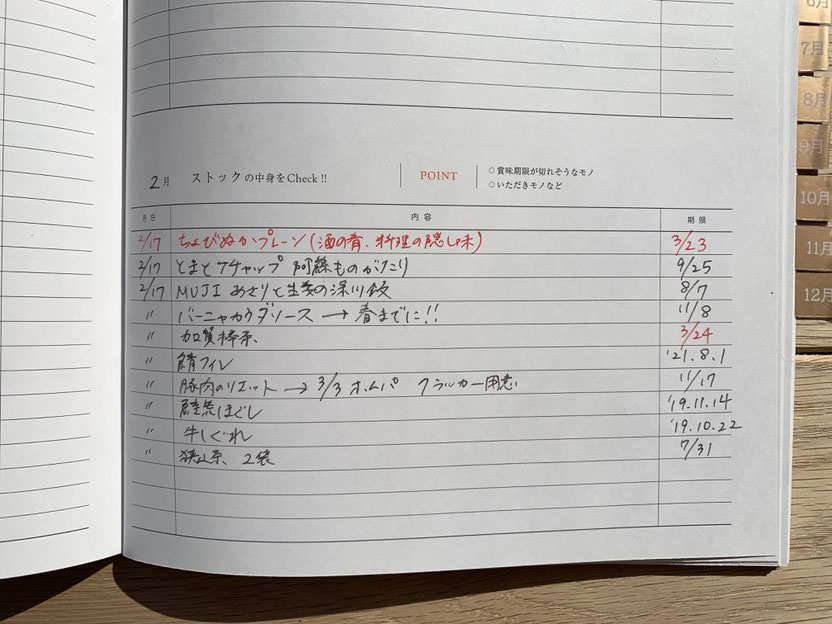 6月
7月
8月
9月
10月
11月
12月
2月 ストックの中身をCheck!! POINT ○賞味期限が切れそうなモノ
○いただきモノなど
月日 内容 期限
2/17 ちょびぬかプレーン(酒の肴、料理の隠し味) 3/23
2/17 とまとケチャップ 阿蘇ものがたり 9/25
2/17 MUJI あさりと生姜の深川飯 8/7
〃 バーニャカウダソース → 春までに!! 11/8
〃 加賀棒茶 3/24
〃 鯖フィレ '21.8.1
〃 豚肉のリエット → 3/3 ホムパ クラッカー用意 11/17
〃 ほぐし '19.11.14
〃 牛しぐれ '19.10.22
〃 狭山茶、2袋 7/31